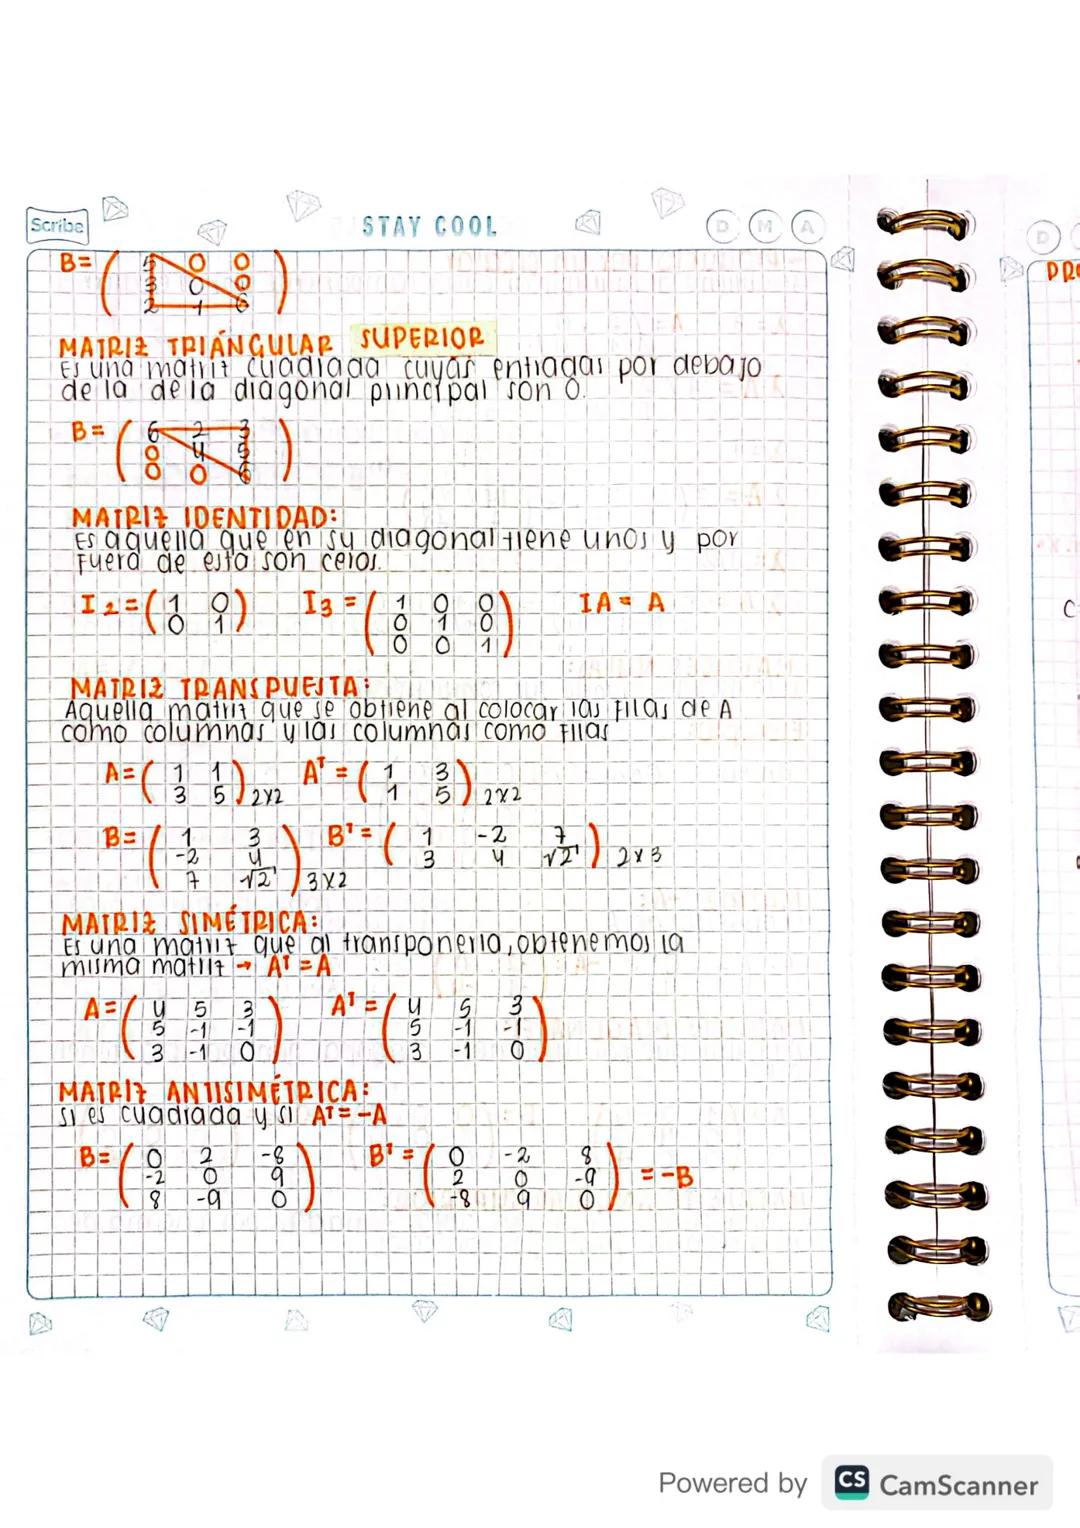 Scribe
STAY COOL
D M A
D
B= ( 5 0 0
3 0 0
2 1 6 )
MATRIZ TRIÁNGULAR SUPERIOR
Es una matriz cuadrada cuyas entradas por debajo
de la de la diagonal principal son 0.
B= ( 6 2 3
0 4 5
0 0 6 )
MATRIZ IDENTIDAD:
Es aquella que en su diagonal tiene unos y por
fuera de esta son ceros.
I2 = ( 1 0
0 1 ) I3 = ( 1 0 0
0 1 0
0 0 1 ) IA = A
MATRIZ TRANSPUESTA:
Aquella matriz que se obtiene al colocar las filas de A
como columnas y las columnas como filas
A= ( 1 1
3 5 ) 2x2 Aᵀ = ( 1 3
1 5 ) 2x2
B= ( 1 3
-2 4
7 √2 ) 3x2 Bᵀ = ( 1 -2 7
3 4 √2 ) 2x3
MATRIZ SIMÉTRICA:
Es una matriz que al transponerla, obtenemos la
misma matriz → Aᵀ = A
A= ( 4 5 3
5 -1 -1
3 -1 0 ) Aᵀ = ( 4 5 3
5 -1 -1
3 -1 0 )
MATRIZ ANTISIMÉTRICA:
Si es cuadrada y si Aᵀ = -A
B= ( 0 2 -8
-2 0 9
8 -9 0 ) Bᵀ = ( 0 -2 8
2 0 -9
-8 9 0 ) = -B
Powered by CS CamScanner